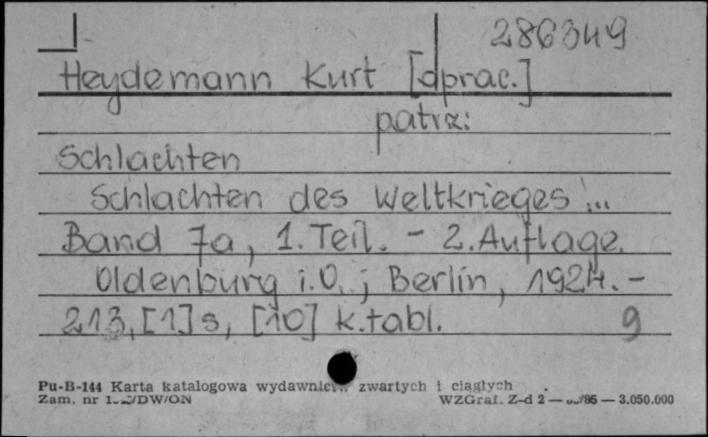 286349
Heydemann Kurt [oprac.]
patrz:
Schlachten
Schlachten des Weltkrieges...
Band 7a, 1. Teil. - 2. Auflage.
Oldenburg i.O.; Berlin, 1924. -
213, [1] s, [10] k.tabl. 9
Pu-B-144 Karta katalogowa zwartych i ciągłych
Zam. nr WZGraf. Z-d 2 — /86 — 3.050.000